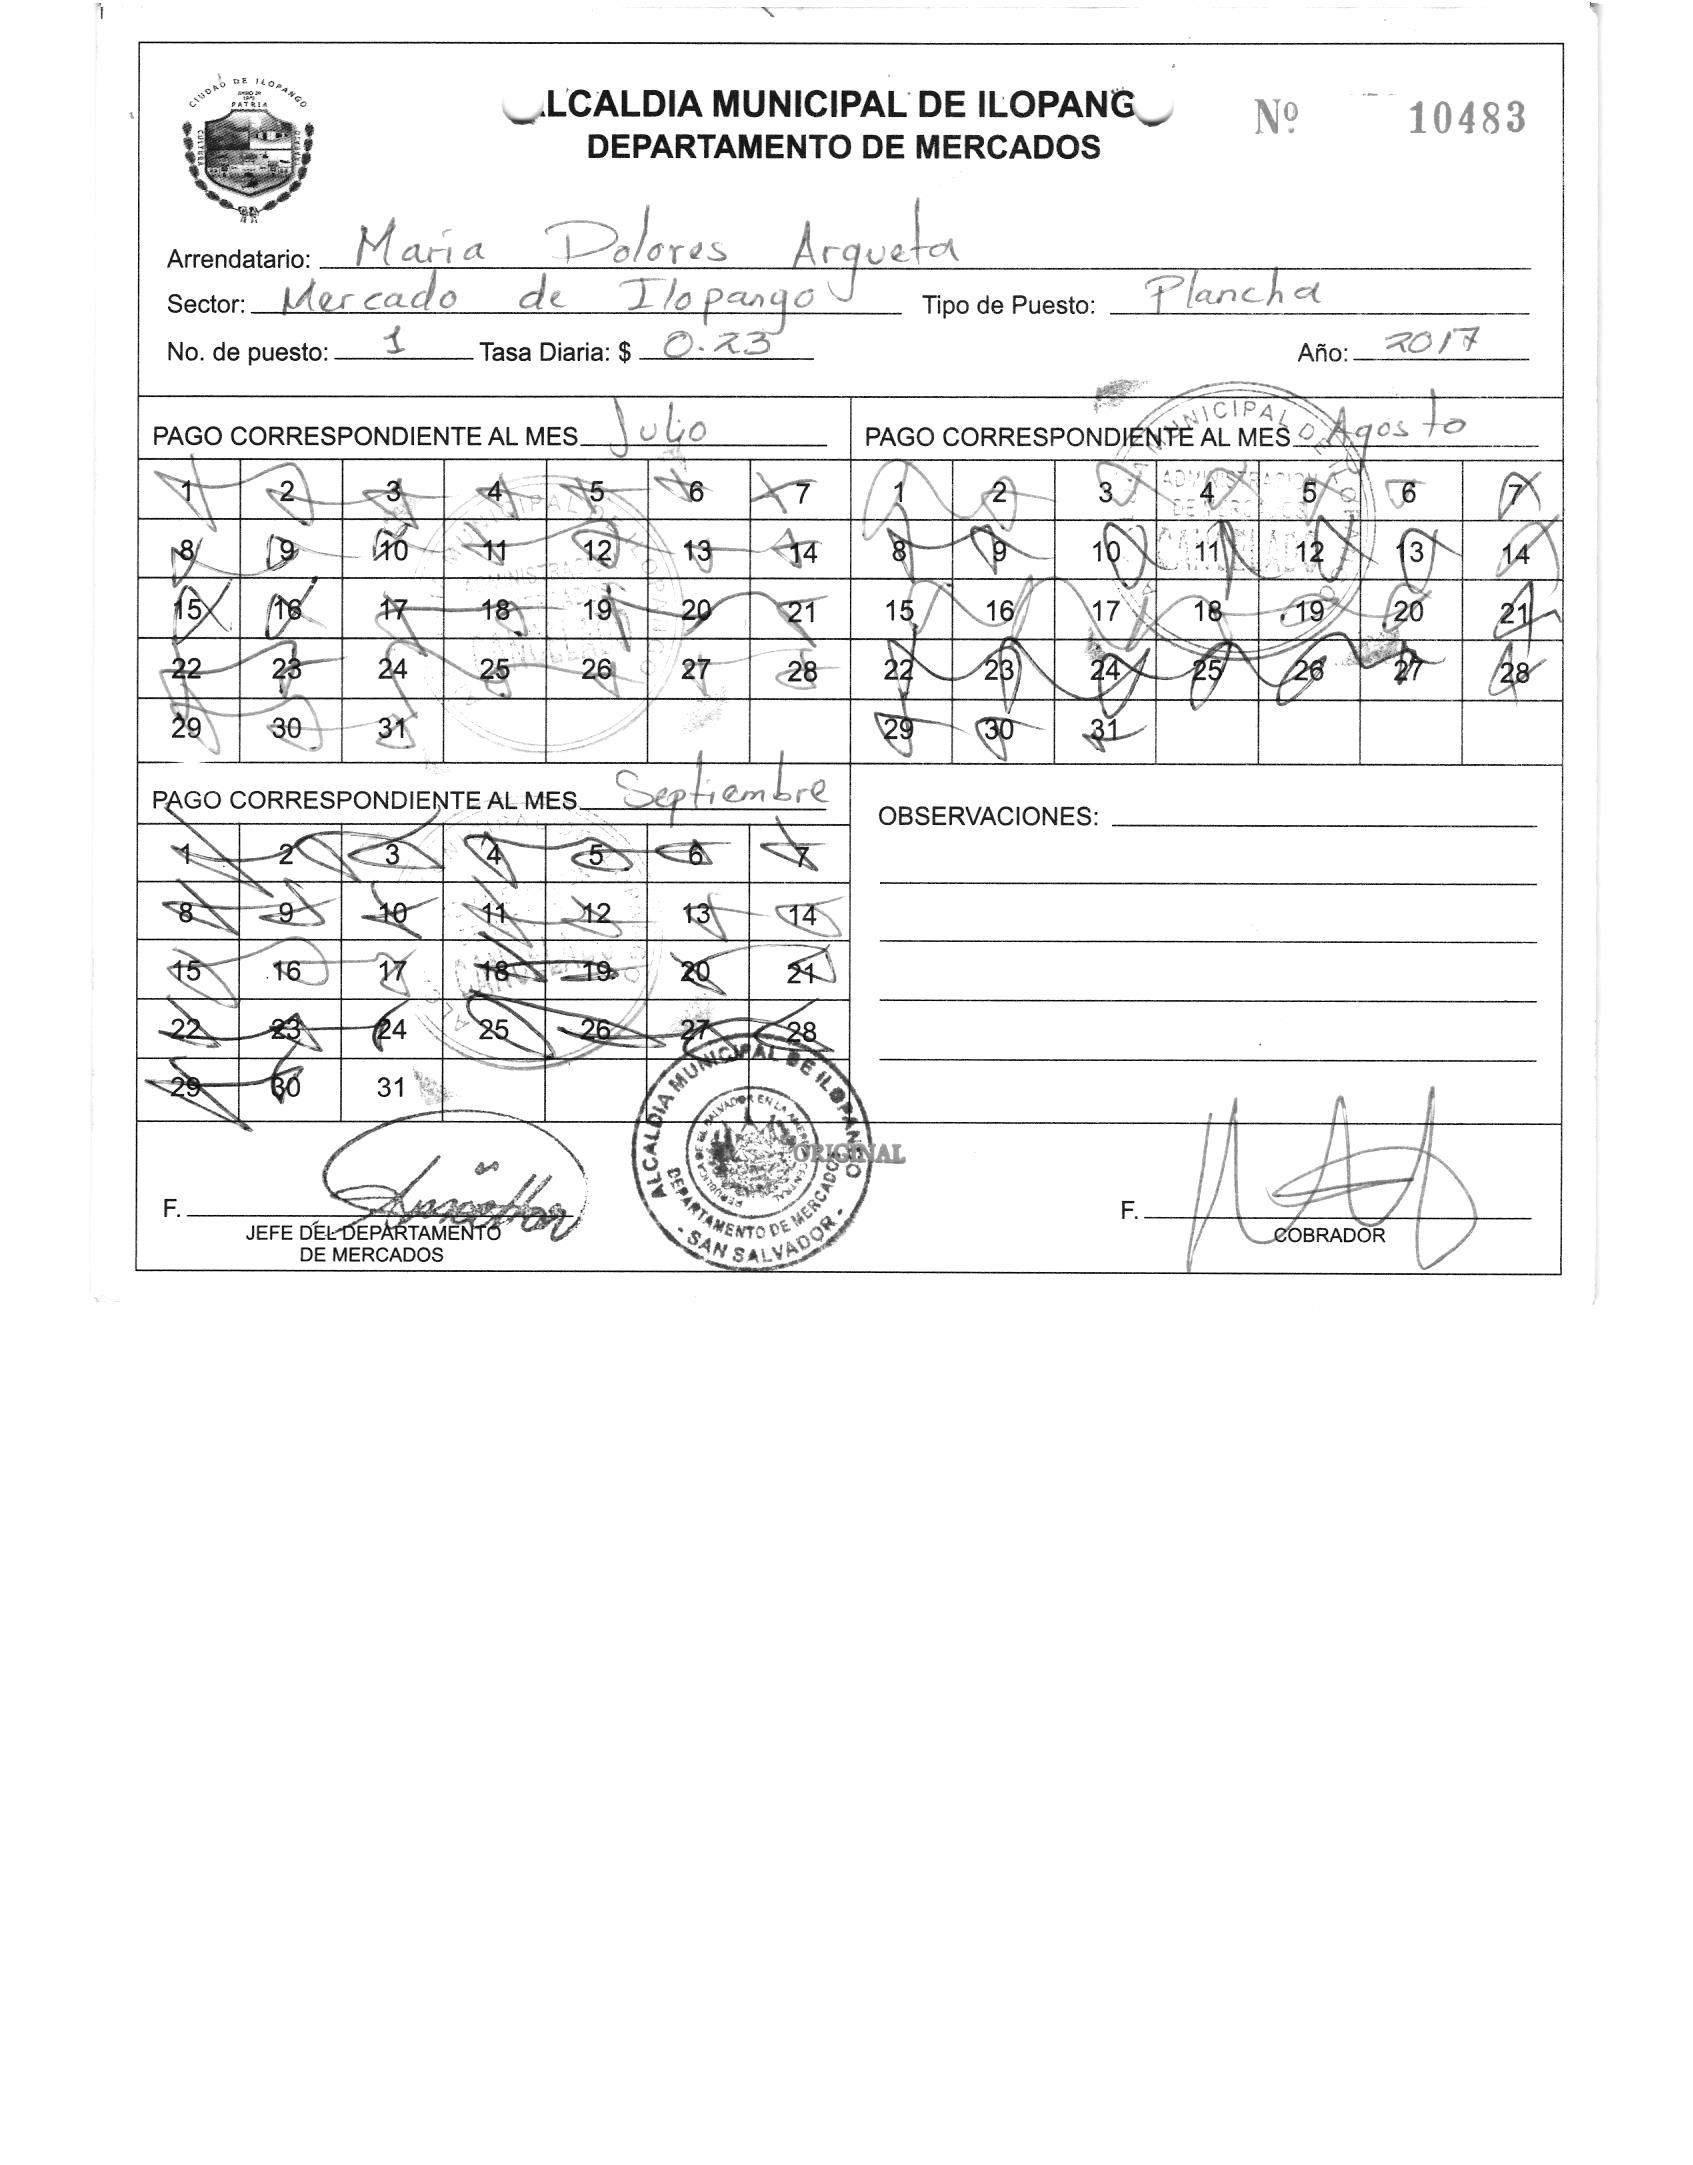 CIUDAD DE ILOPANGO
PATRIA
CULTURA
LCALDIA MUNICIPAL DE ILOPANG
DEPARTAMENTO DE MERCADOS
Nº 10483
Arrendatario: Maria Dolores Argueta
Sector: Mercado de Ilopango Tipo de Puesto: Plancha
No. de puesto: 1 Tasa Diaria: $ 0.23 Año: 2017
PAGO CORRESPONDIENTE AL MES Julio
1 2 3 4 5 6 7
8 9 10 11 12 13 14
15 16 17 18 19 20 21
22 23 24 25 26 27 28
29 30 31
PAGO CORRESPONDIENTE AL MES Agosto
1 2 3 4 5 6 7
8 9 10 11 12 13 14
15 16 17 18 19 20 21
22 23 24 25 26 27 28
29 30 31
MUNICIPAL DE ILOPANGO
ADMINISTRACION
DE MERCADOS
CANCELADO
PAGO CORRESPONDIENTE AL MES Septiembre
1 2 3 4 5 6 7
8 9 10 11 12 13 14
15 16 17 18 19 20 21
22 23 24 25 26 27 28
29 30 31
OBSERVACIONES:
ALCALDIA MUNICIPAL DE ILOPANGO
REPUBLICA DE EL SALVADOR EN LA AMERICA CENTRAL
DEPARTAMENTO DE MERCADOS
- SAN SALVADOR -
ORIGINAL
F.
JEFE DEL DEPARTAMENTO
DE MERCADOS
F.
COBRADOR